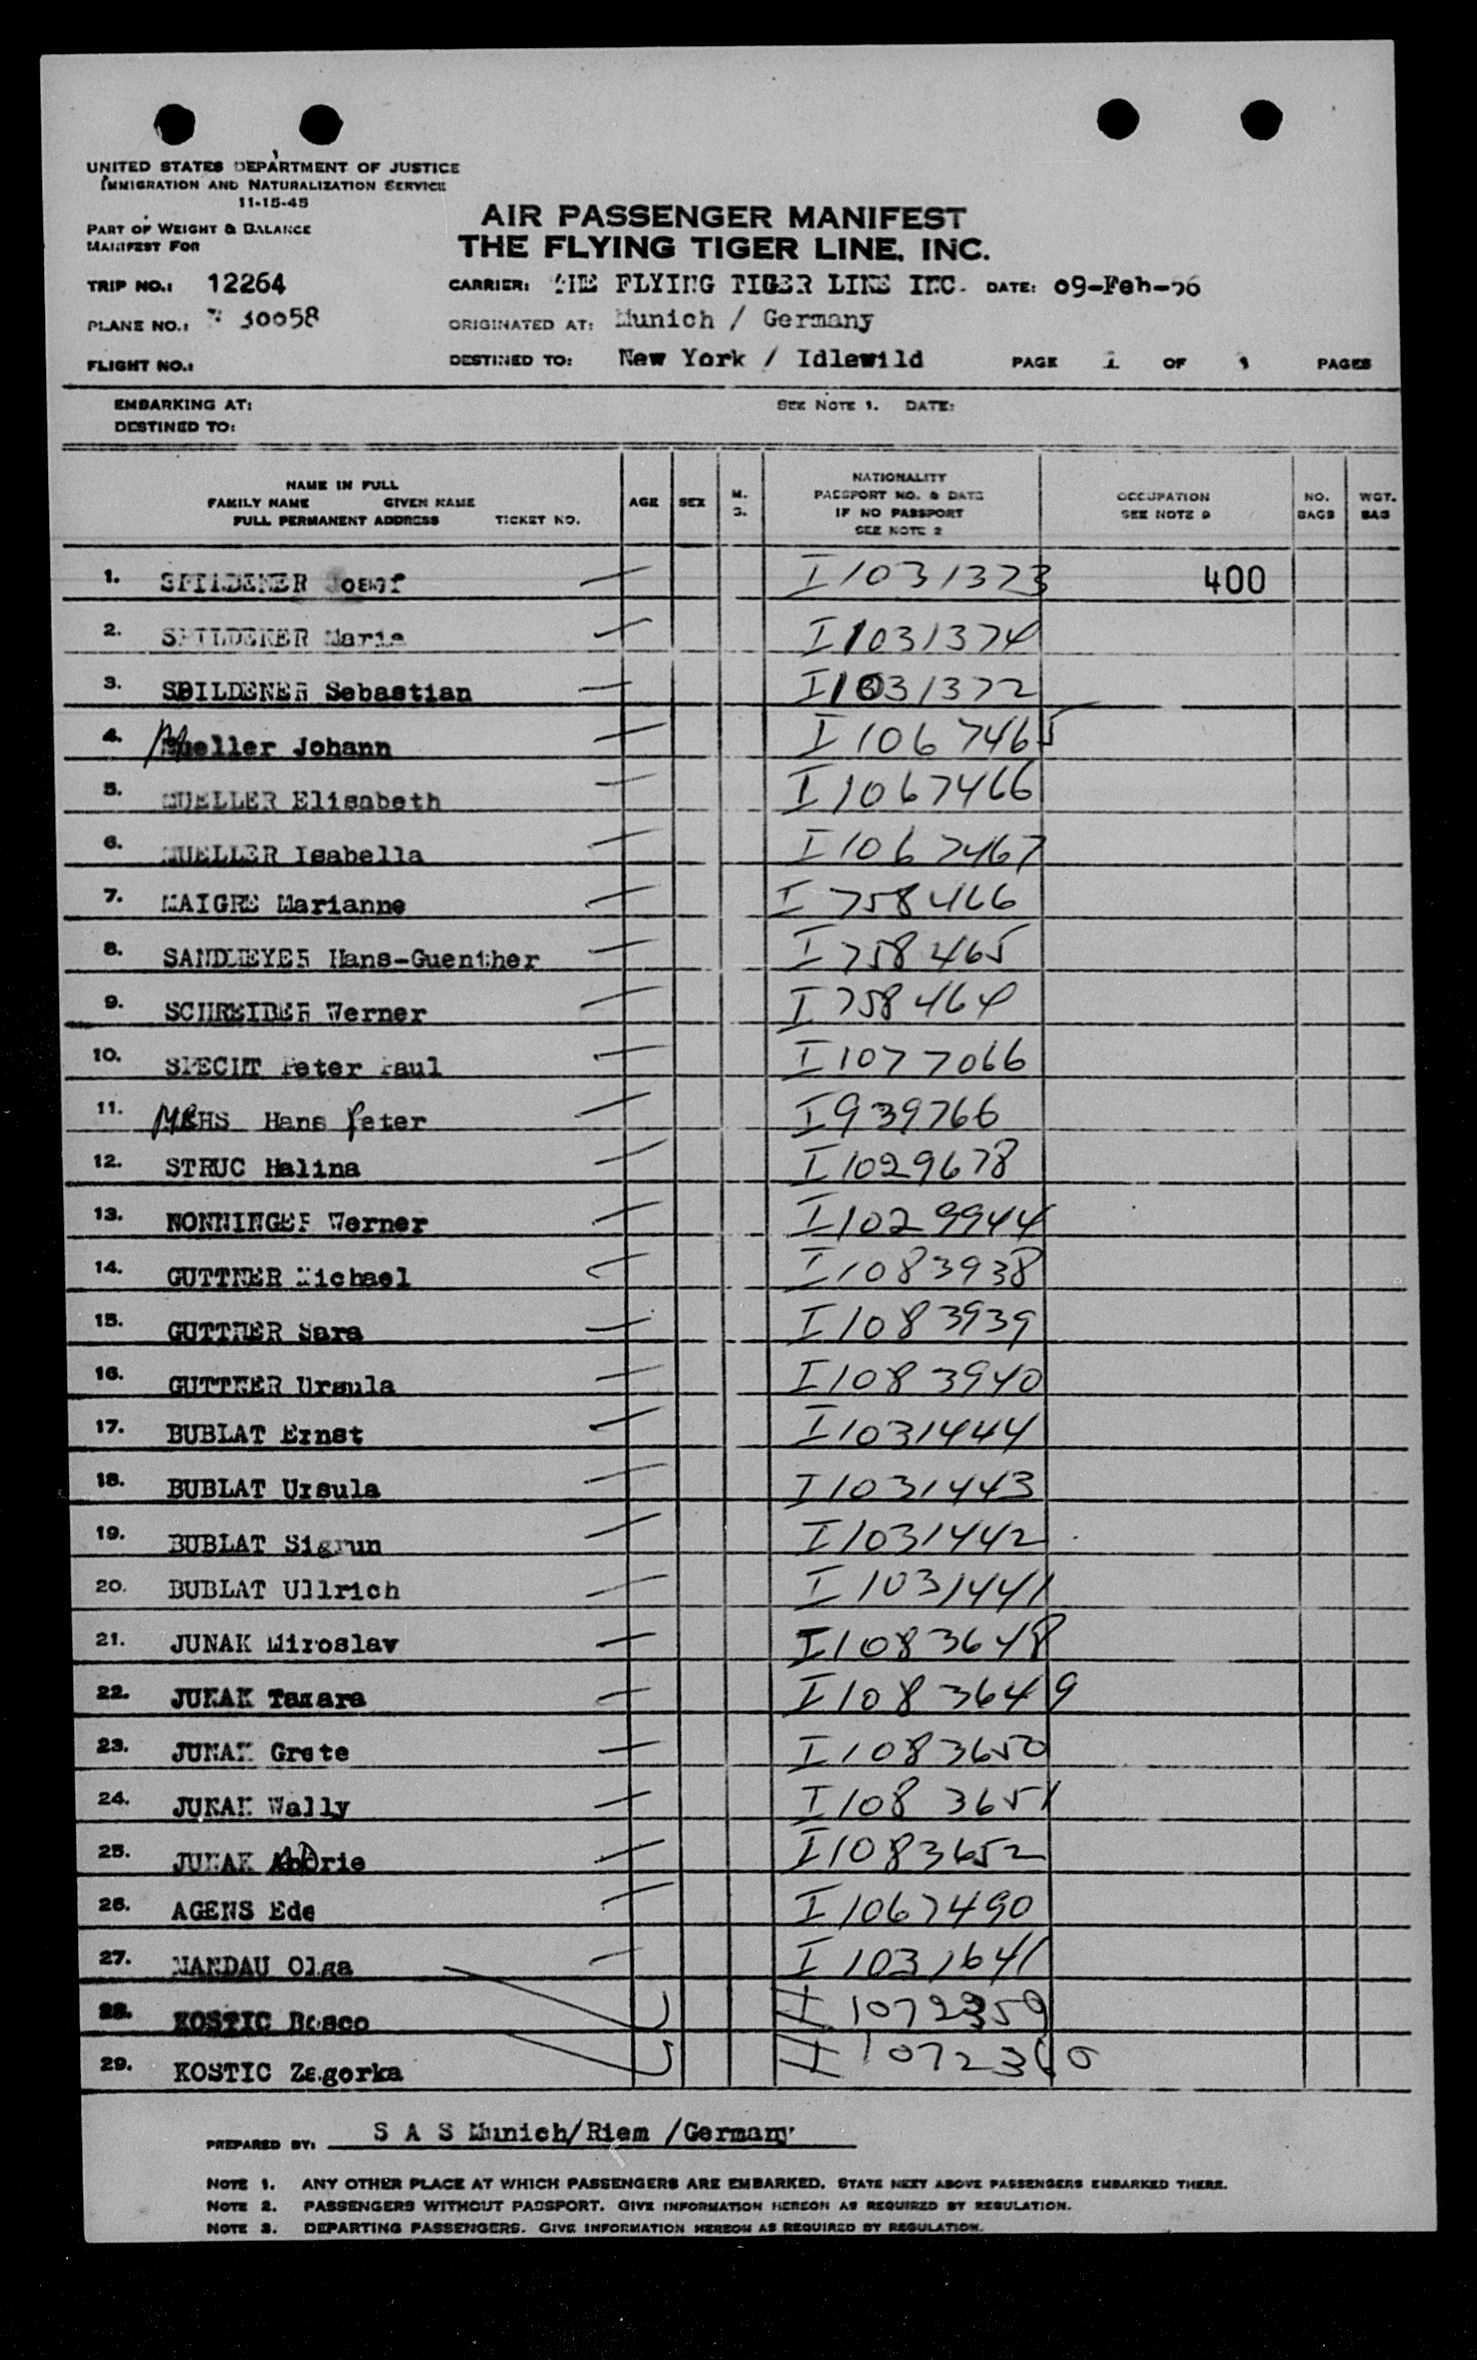 UNITED STATES DEPARTMENT OF JUSTICE
IMMIGRATION AND NATURALIZATION SERVICE
11-15-45
PART OF WEIGHT & BALANCE
MANIFEST FOR
AIR PASSENGER MANIFEST
THE FLYING TIGER LINE, INC.
TRIP NO.: 12264 CARRIER: THE FLYING TIGER LINE INC. DATE: 09-Feb-56
PLANE NO.: 30058 ORIGINATED AT: Munich / Germany
FLIGHT NO.: DESTINED TO: New York / Idlewild PAGE 1 OF PAGES
EMBARKING AT: SEE NOTE 1. DATE:
DESTINED TO:
NAME IN FULL
FAMILY NAME GIVEN NAME
FULL PERMANENT ADDRESS TICKET NO.
AGE SEX M. S.
NATIONALITY
PASSPORT NO. & DATE
IF NO PASSPORT
SEE NOTE 2
OCCUPATION
SEE NOTE 3
NO. BAGS
WGT. BAG
1. SPILDENER Josef I1031373 400
2. SPILDENER Maria I1031374
3. SPILDENER Sebastian I1031372
4. Mueller Johann I1067465
5. MUELLER Elisabeth I1067466
6. MUELLER Isabella I1067467
7. MAIGRE Marianne I758466
8. SANDMEYER Hans-Guenther I758465
9. SCHREIBER Werner I758464
10. SPECHT Peter Paul I1077066
11. MEHS Hans Peter I939766
12. STRUC Halina I1029678
13. NONNINGER Werner I1029944
14. GUTTNER Michael I1083938
15. GUTTNER Sara I1083939
16. GUTTNER Ursula I1083940
17. BUBLAT Ernst I1031444
18. BUBLAT Ursula I1031443
19. BUBLAT Sigrun I1031442
20. BUBLAT Ullrich I1031441
21. JUNAK Miroslav I1083648
22. JUNAK Tamara I1083649
23. JUNAK Grete I1083650
24. JUNAK Wally I1083651
25. JUNAK I1083652
26. AGENS Ede I1067490
27. NANDAU Olga I1031641
28. KOSTIC Bosco I1072359
29. KOSTIC Zagorka I1072360
PREPARED BY: S A S Munich/Riem /Germany
NOTE 1. ANY OTHER PLACE AT WHICH PASSENGERS ARE EMBARKED. STATE NEXT ABOVE PASSENGERS EMBARKED THERE.
NOTE 2. PASSENGERS WITHOUT PASSPORT. GIVE INFORMATION HEREON AS REQUIRED BY REGULATION.
NOTE 3. DEPARTING PASSENGERS. GIVE INFORMATION HEREON AS REQUIRED BY REGULATION.